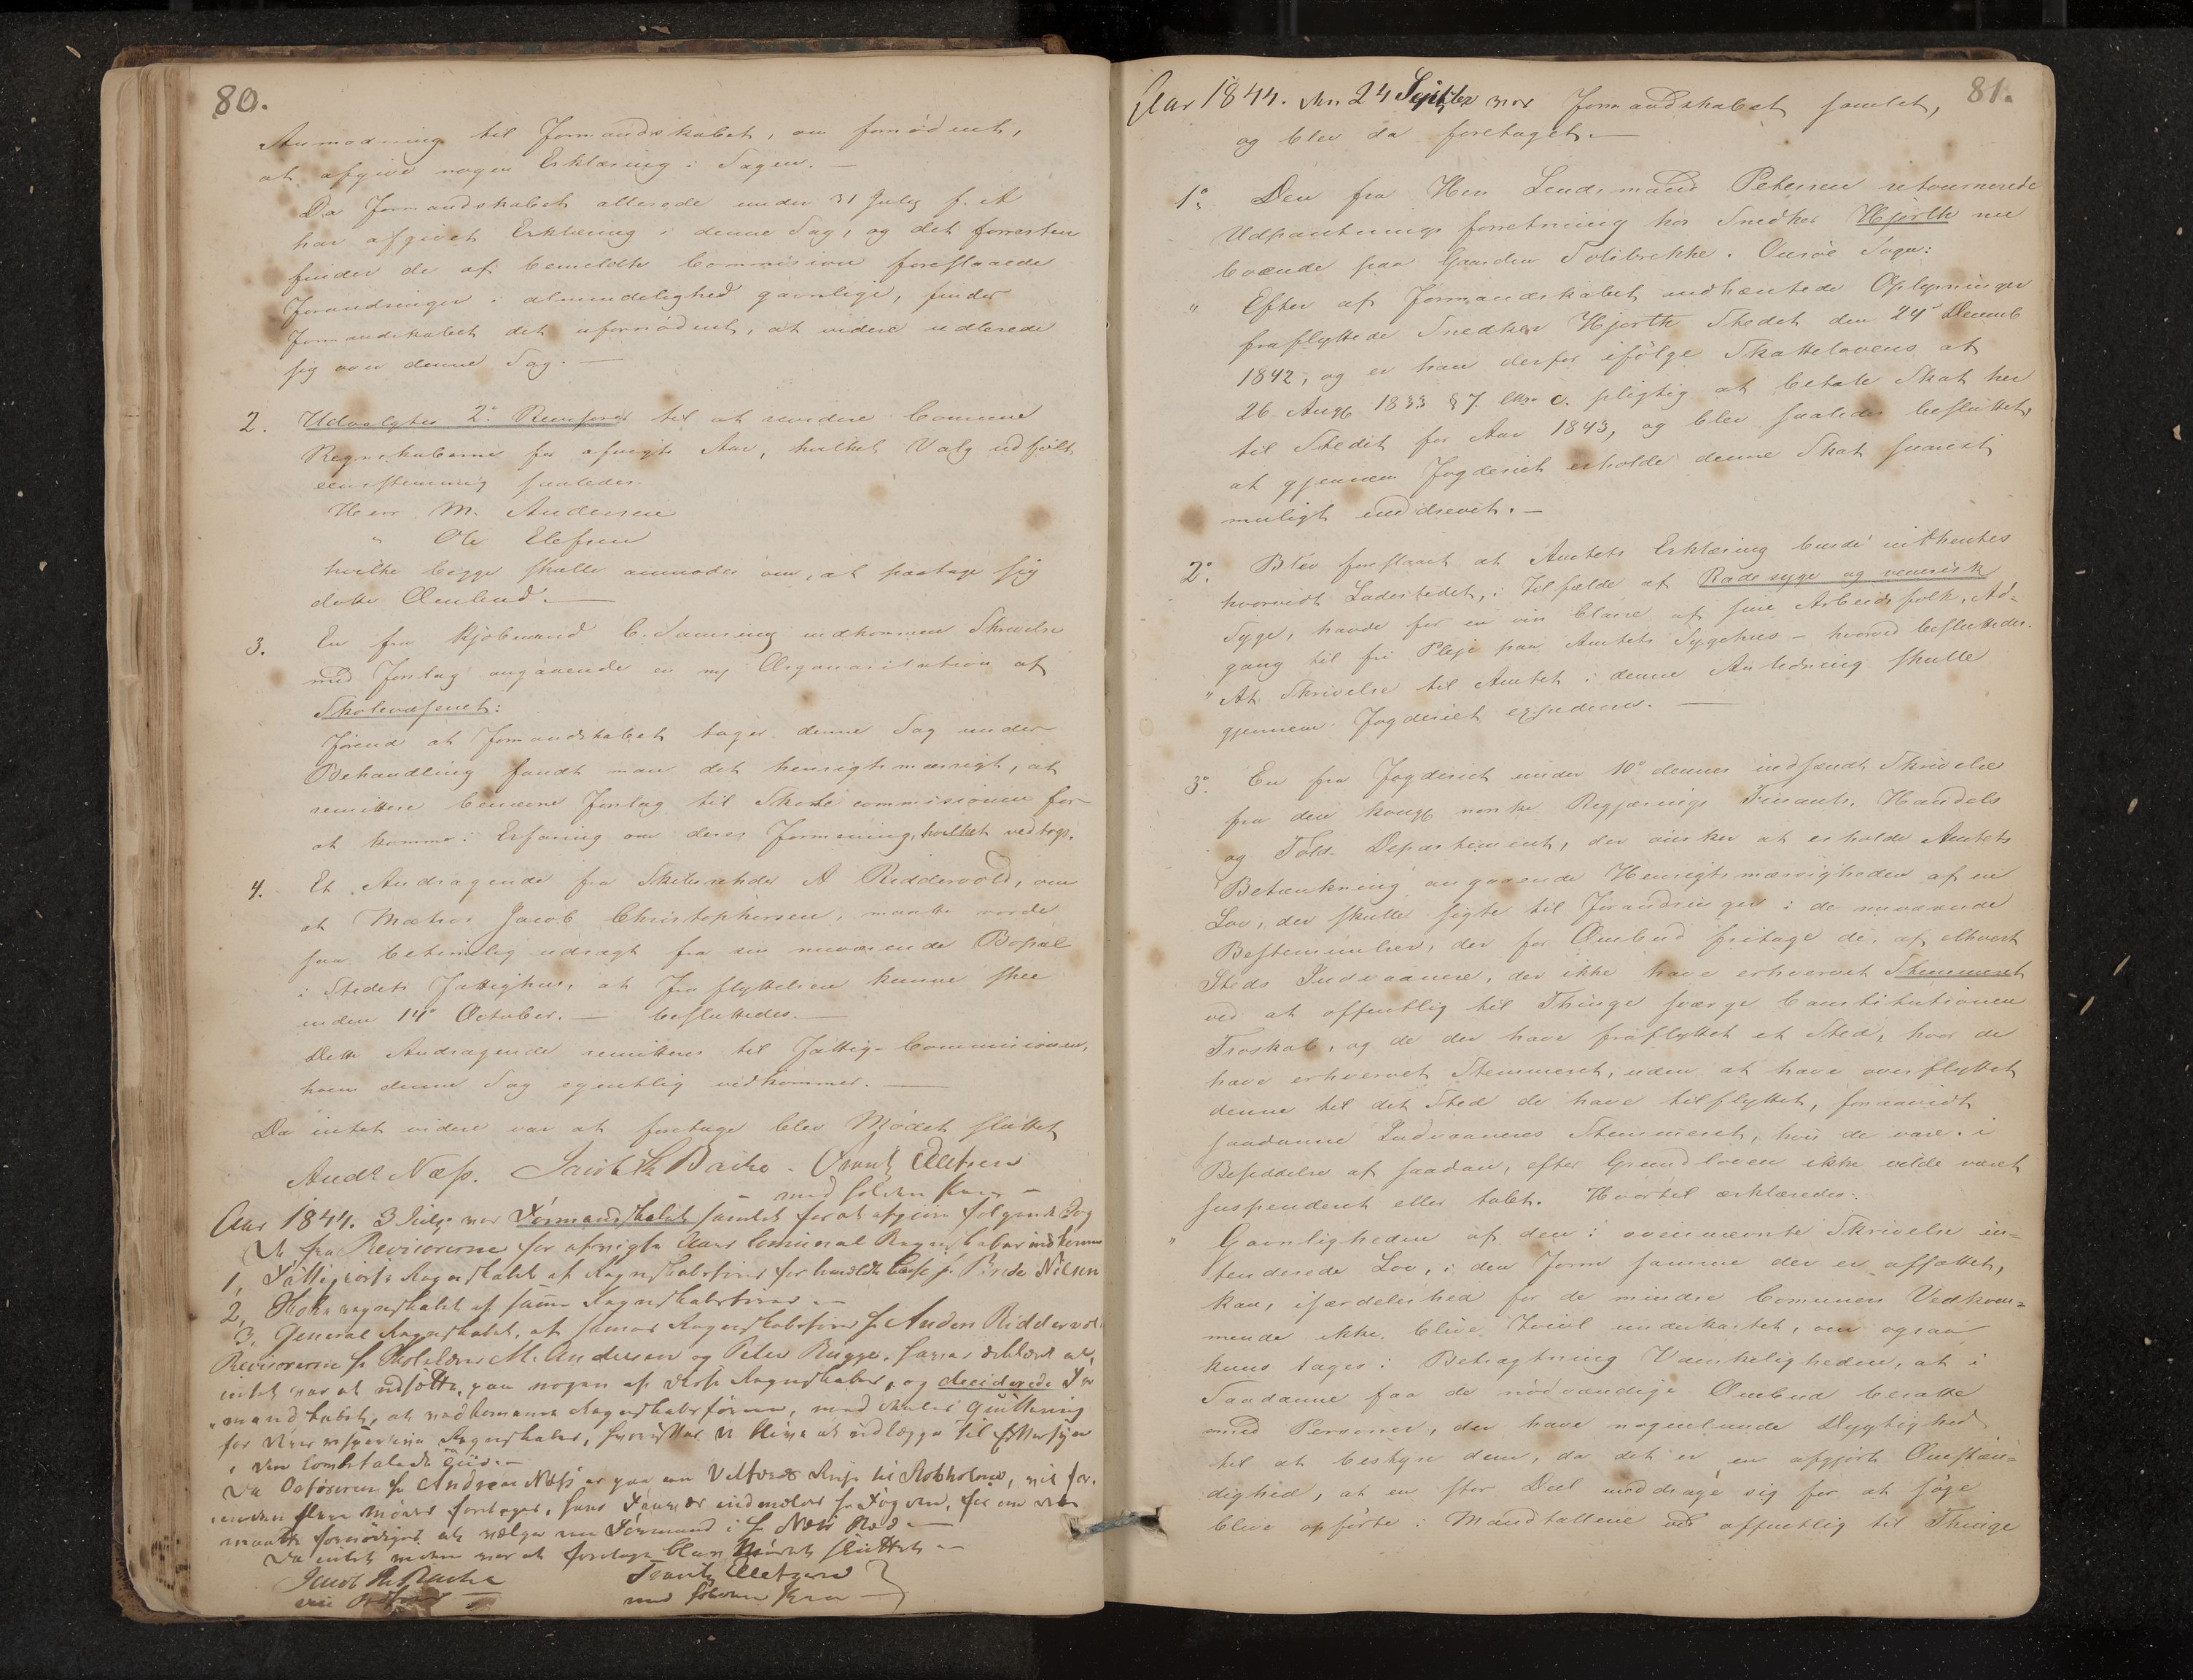 80.
Anmodning til Formandskabet, om fornødent,
at afgive nogen Erklæring i Sagen. —
Da Formandskabet allerede under 31 July f. A
har afgivet Erklæring i denne Sag, og det forresten
finder de af bemeldte Commision foreslaaede
Forandringer i almindelighed gavnlige, finder
Formandskabet det ufornødent, at videre udlade
sig over denne Sag. —
2. Udvalgtes 2de Revisorer til at revidere Commune
Regnskaberne for afvigte Aar, hvilket Valg udfaldt
eenstemmig saaledes
Herr M. Andersen
" Ole Elefsen
hvilke begge skulle anmodes om, at paatage sig
dette Ombud. —
3. En fra Kjøbmand C. indkommen Skrivelse
med Forslag angaaende en ny Organisitation af
Skolevæsenet:
Førend at Formandskabet tager denne Sag under
Behandling fandt man det hensigtsmæssigt, at
remittere benævnte Forslag til Skolecommisionen for
at komme i Erfaring om deres Formening, hvilket vedtogs.
4. Et Andragende fra A Riddervold, om
at Matros Jacob Christophersen, maatte vorde
saa betimelig udsagt fra sin nuværende Bopæl
i Stedets Fattighus, at Fraflyttelsen kunne skee
inden 14de October. — besluttedes. —
Dette Andragende remitteres til Fattig-Commisionen,
hvem denne Sag egentlig vedkommer. —
Da intet videre var at foretage blev Mødet sluttet
Andr. Næss. Jacob Bache. Frantz Elletsen
med holden Pen —
Aar 1844. 3 July var Formandskabet samlet for at afgive følgende
fra Revisorerne for afvigte Aars Comunal Regnskaber indkomne
1, Fattigvæsets Regnskabet af Regnskabsfører for bemeldte Casse Hr. Brede Nilsen
2, Skoleregnskabet af samme Regnskabsfører —
3, General Regnskabet, af samme Regnskabsfører Hr Anders Riddervold
Revisorerne Hr Skolelærer M. Andersen og Peter Bugge, havde erklæret at
intet var at udsætte paa nogen af disse Regnskaber, og deciderede For
mandskabet, at vedkommende Regnskabsførere, meddeles Quittering
for deres respective Regnskaber, hvorefter de blive at udlægge til Eftersyn
i den lovbefalede Tid. —
Da Ordføreren Hr Andreas Næss er paa en Velfærds Reise til Stokholm, vil for-
inden flere Møder foretages, hans Fravær indmeldes Hr Fogden, for om det
maatte fornødiges at vælge en Formand i Hr Næss Sted —
Da intet videre var at foretage blev Mødet sluttet —
Jacob Bache
vice Ordfører
Frantz Elletsen
med holden Pen
81.
Aar 1844. den 24 Septbr var Formandskabet samlet,
og blev da foretaget. —
1o Den fra Herr Lendsmand Petersen retournerede
Udpantnings forretning hos Snedker Hjorth nu
boende paa Gaarden Solibrekke. Onsøe Sogn:
" Efter af Formandskabet indhentede Oplysninger
fraflyttede Snedker Hjorth Stedet den 24de Decemb
1842, og er han derfor ifølge Skattelovens af
26 Augt 1833 § 7. Litr. c. pligtig at betale Skat her
til Stedet for Aar 1843, og blev saaledes besluttet,
at gjennem Fogderiet erholde denne Skat snarest
muligt inddrevet. —
2o Blev foreslaaet at Amtets Erklæring burde indhentes
hvorvidt Ladestedet, i Tilfælde af Radesyge og venerisk
Syge, havde for en vis Classe af sine Arbeidsfolk, Ad-
gang til fri Pleje paa Amtets Sygehus — hvorved besluttedes.
" At Skrivelse til Amtet i denne Anledning skulle
gjennem Fogderiet expederes. —
3o En fra Fogderiet under 10de dennes indsendt Skrivelse
fra den kongl norske Regjærings Finants, Handels
og Told-Departement, der ønsker at erholde Amtets
Betænkning angaaende Hensigtsmæssigheden af en
Lov, der skulle sigte til Forandringer i de nuværende
Bestemmelser, der for Ombud fritage de, af ethvert
Steds Indvaanere, der ikke have erhvervet Stemmeret
ved at offentlig til Thinge sværge Constitutionen
Troskab, og de der have fraflyttet et Sted, hvor de
have erhvervet Stemmeret, uden at have overflyttet
denne til det Sted de have tilflyttet, forsaavidt
saadanne Indvaaneres Stemmeret, hvis de vare i
Besiddelse af saadan, efter Grundloven ikke vilde været
suspenderet eller tabt. Hvortil erklæredes:
" Gavnligheden af den i ovennævnte Skrivelse in-
tenderede Lov, i den Form samme der er affattet,
kan, isærdeleshed for de mindre Comuners Vedkom-
mende ikke blive Tvivl underkastet, om ogsaa
kuns tages i Betragtning Vanskeligheden, at i
Saadanne faa de nødvændige Ombud besatte
med Personer, der have nogenlunde Dygtighed
til at bestyre dem, da det er en afgjort Omstæn-
dighed, at en stor Deel unddrage sig for at søge
blive opførte i Mandtallene ved offentlig til Thinge